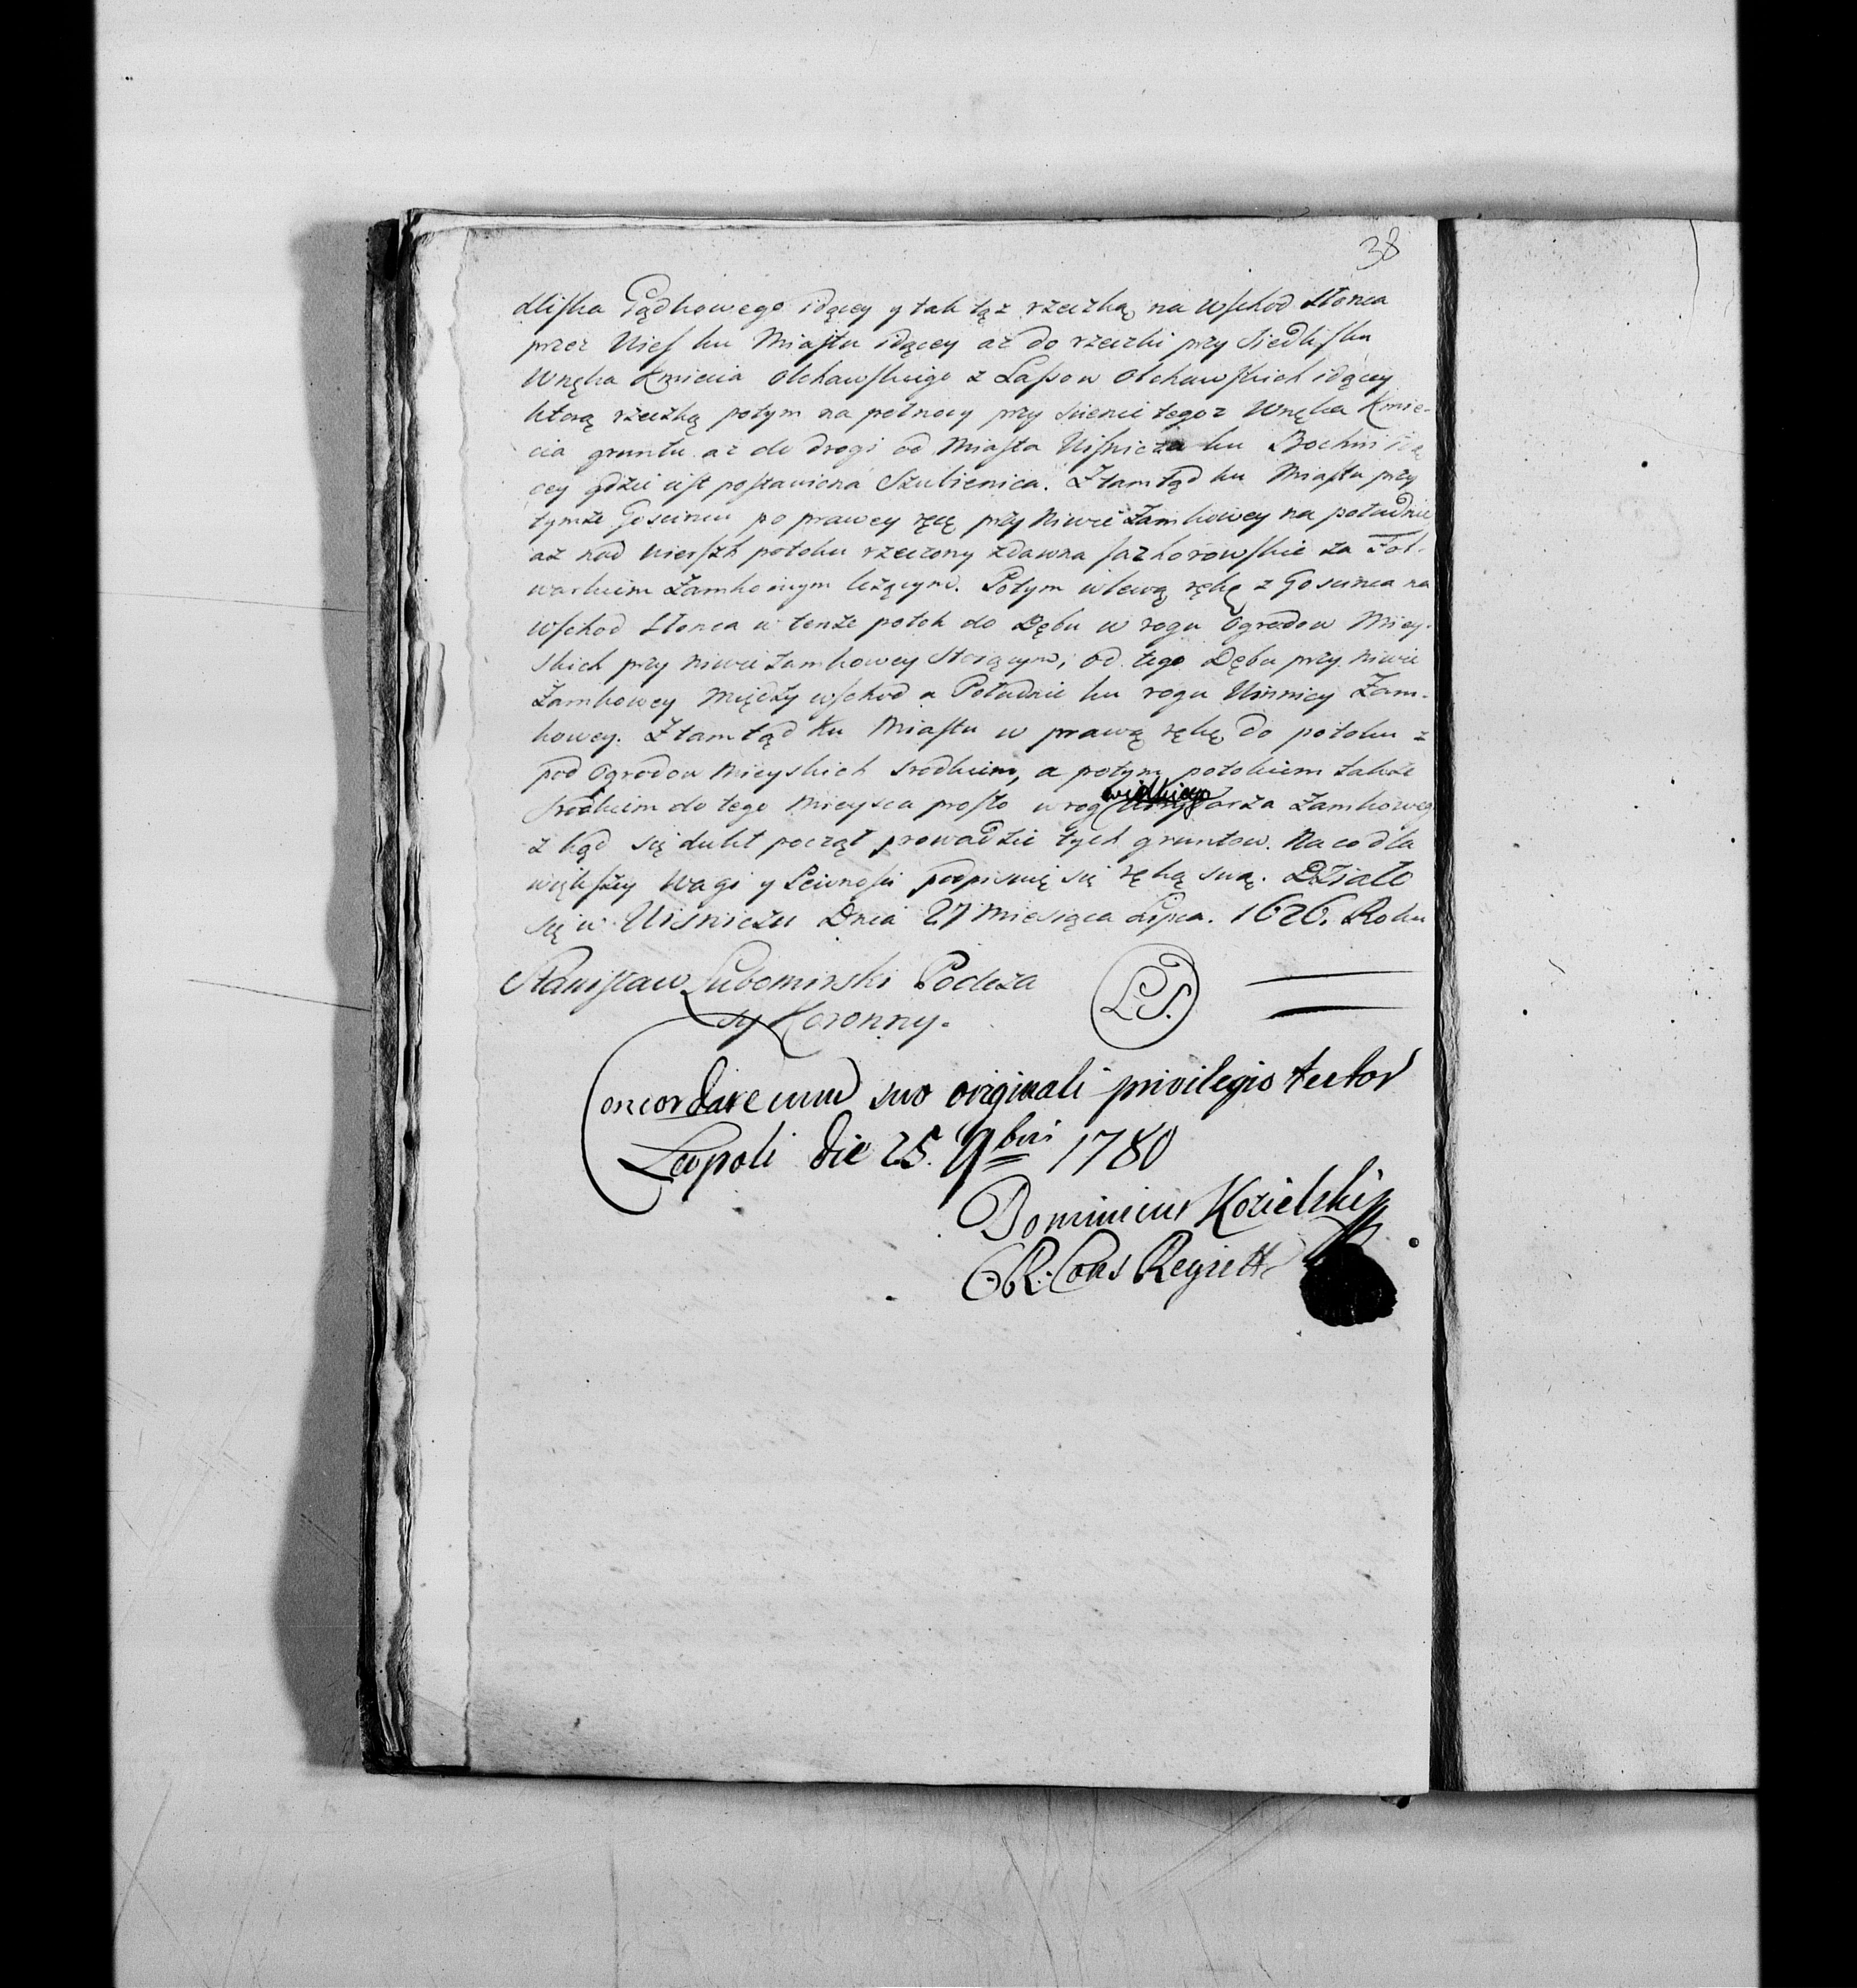 38
dliska Gądkowego idącey y tak tąż rzeczką na Wschod Słonca
przez Wieś ku Miastu idącey aż do rzeczki przy Siedlisku
Wnęka Kmiecia Olchawskiego z Lassow Olchawskich idącey
ktorą rzeczką potym na połnocy przy scienie tegoz Wnęka Kmie-
cia gruntu aż do drogi od Miasta Wisnicza ku Bochni idą
cey gdzie iest postawiona Szubienica. Ztamtąd ku Miastu przy
tymże Goscincu po prawey ręcę przy Niwie Zamkowey na południe
aż nad Wierszk potoku rzeczony zdawna Jazkorowskie za Fol-
warkiem Zamkowym leżącym. Potym w lewą rękę z Goscinca na
Wschod Słonca w tenże potok do Dębu w rogu Ogrodow Miey-
skich przy Niwie Zamkowey stoiącym, od tego Dębu przy Niwie
Zamkowey Między wschod a Południe ku rogu Winnicy Zam-
kowey. Ztamtąd Ku Miastu w prawą rękę do potoku z
pod Ogrodow Mieyskich srodkiem, a potym potokiem także
srodkiem do tego Mieysca prosto w rog Zamkowego
z kąd się dukt począł prowadzic tych gruntow. Na co dla
większey Wagi y Pewności podpisuię się ręką swą. Działo
się w Wisniczu Dnia 27 Miesiąca Lipca. 1626. Roku
Stanisław Lubomirski Podcza
szy Koronny.
L.S.
Concordare cum suo originali privilegio testor
Leopoli die 25. 9bris 1780
Dominicus Kozielski
C. R. Cons Regiett